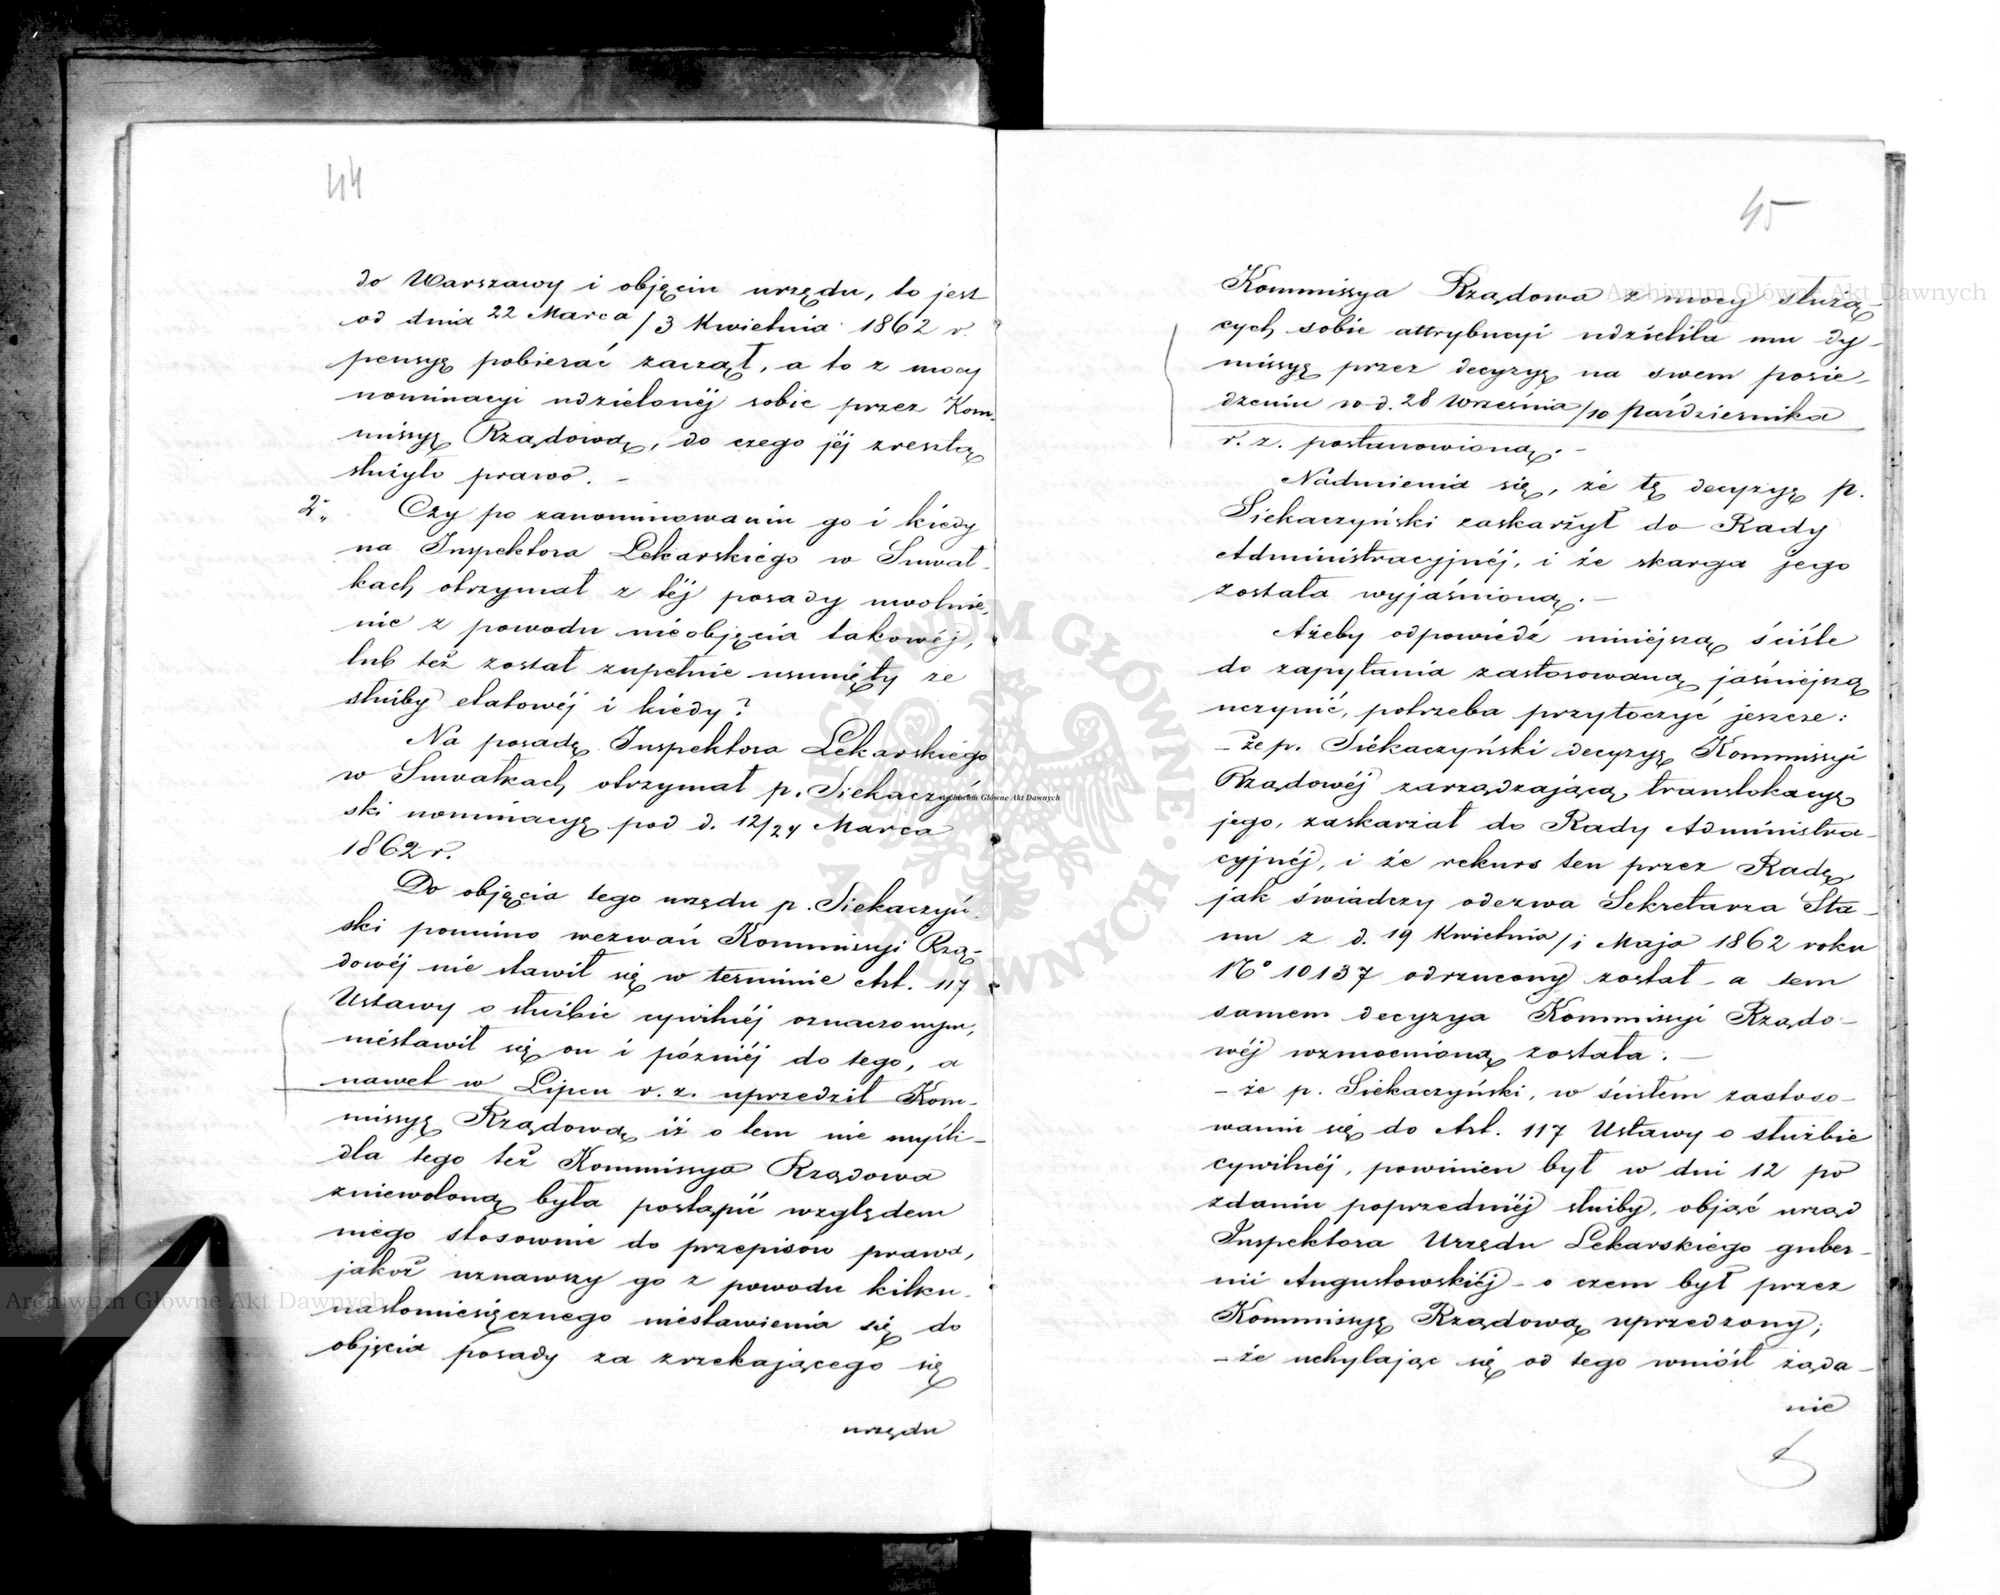 44
do Warszawy i objęciu urzędu, to jest
od dnia 22 Marca/3 Kwietnia 1862 r.
pensyę pobierać zaczął, a to z mocy
nominacyi udzielonéj sobie przez Kom-
missyę Rządową, do czego jéj zresztą
służyło prawo. –
2. Czy po zanominowaniu go i kiedy
na Inspektora Lekarskiégo w Suwał-
kach, otrzymał z téj posady uwolnie-
nie z powodu nieobjęcia takowéj,
lub też został zupełnie usunięty ze
służby etatowéj i kiédy?
Na posadę Inspektora Lekarskiégo
w Suwałkach otrzymał p. Siekaczyń-
ski nominacyę pod d. 12/24 Marca
1862 r.
Do objęcia tego urzędu p. Siekaczyń-
ski pomimo wezwań Kommissyi Rzą-
dowéj nie stawił się w terminie Art. 117
Ustawy o służbie cywilnéj oznaczonym,
niestawił się on i późniéj do tego, a
nawet w Lipcu r. z. uprzedził Kom-
missyę Rządową iż o tem nie myśli –
dla tego też Kommissya Rządowa
zniewoloną była postąpić względem
niego stosownie do przepisów prawa,
jakoż uznawszy go z powodu kilku-
nastomiesięcznego niestawienia się do
objęcia posady za zrzekającego się
urzędu
45
Kommissya Rządowa z mocy służą-
cych sobie attrybucyi udzieliła mu dy-
missyę przez decyzyę na swem posie-
dzeniu w d. 28 Września/10 Października
r. z. postanowioną. –
Nadmienia się, że tę decyzyę p.
Siekaczyński zaskarżył do Rady
Administracyjnéj, i że skarga jego
została wyjaśnioną. –
Ażeby odpowiédź niniejszą ściśle
do zapytania zastosowaną jaśniejszą
uczynić, potrzeba przytoczyć jeszcze:
– że p. Siékaczyński decyzyę Kommissyi
Rządowéj zarządzającą translokacyę
jego, zaskarżał do Rady Administra-
cyjnéj, i że rekurs ten przez Radę
jak świadczy odezwa Sekretarza Sta-
nu z d. 19 Kwietnia/1 Maja 1862 roku
No 10137 odrzucony został – a tem
samem decyzya Kommissyi Rządo-
wéj wzmocnioną została. –
– że p. Siekaczyński, w ścisłem zastoso-
waniu się do Art. 117 Ustawy o służbie
cywilnéj, powinien był w dni 12 po
zdaniu poprzedniéj służby, objąć urząd
Inspektora Urzędu Lekarskiégo guber-
nii Augustowskiéj – o czem był przez
Kommissyę Rządową uprzedzony;
– że uchylając się od tego wniósł żąda-
nie
Archiwum Główne Akt Dawnych
Archiwum Główne Akt Dawnych
Archiwum Główne Akt Dawnych
ARCHIWUM GŁÓWNE AKT DAWNYCH